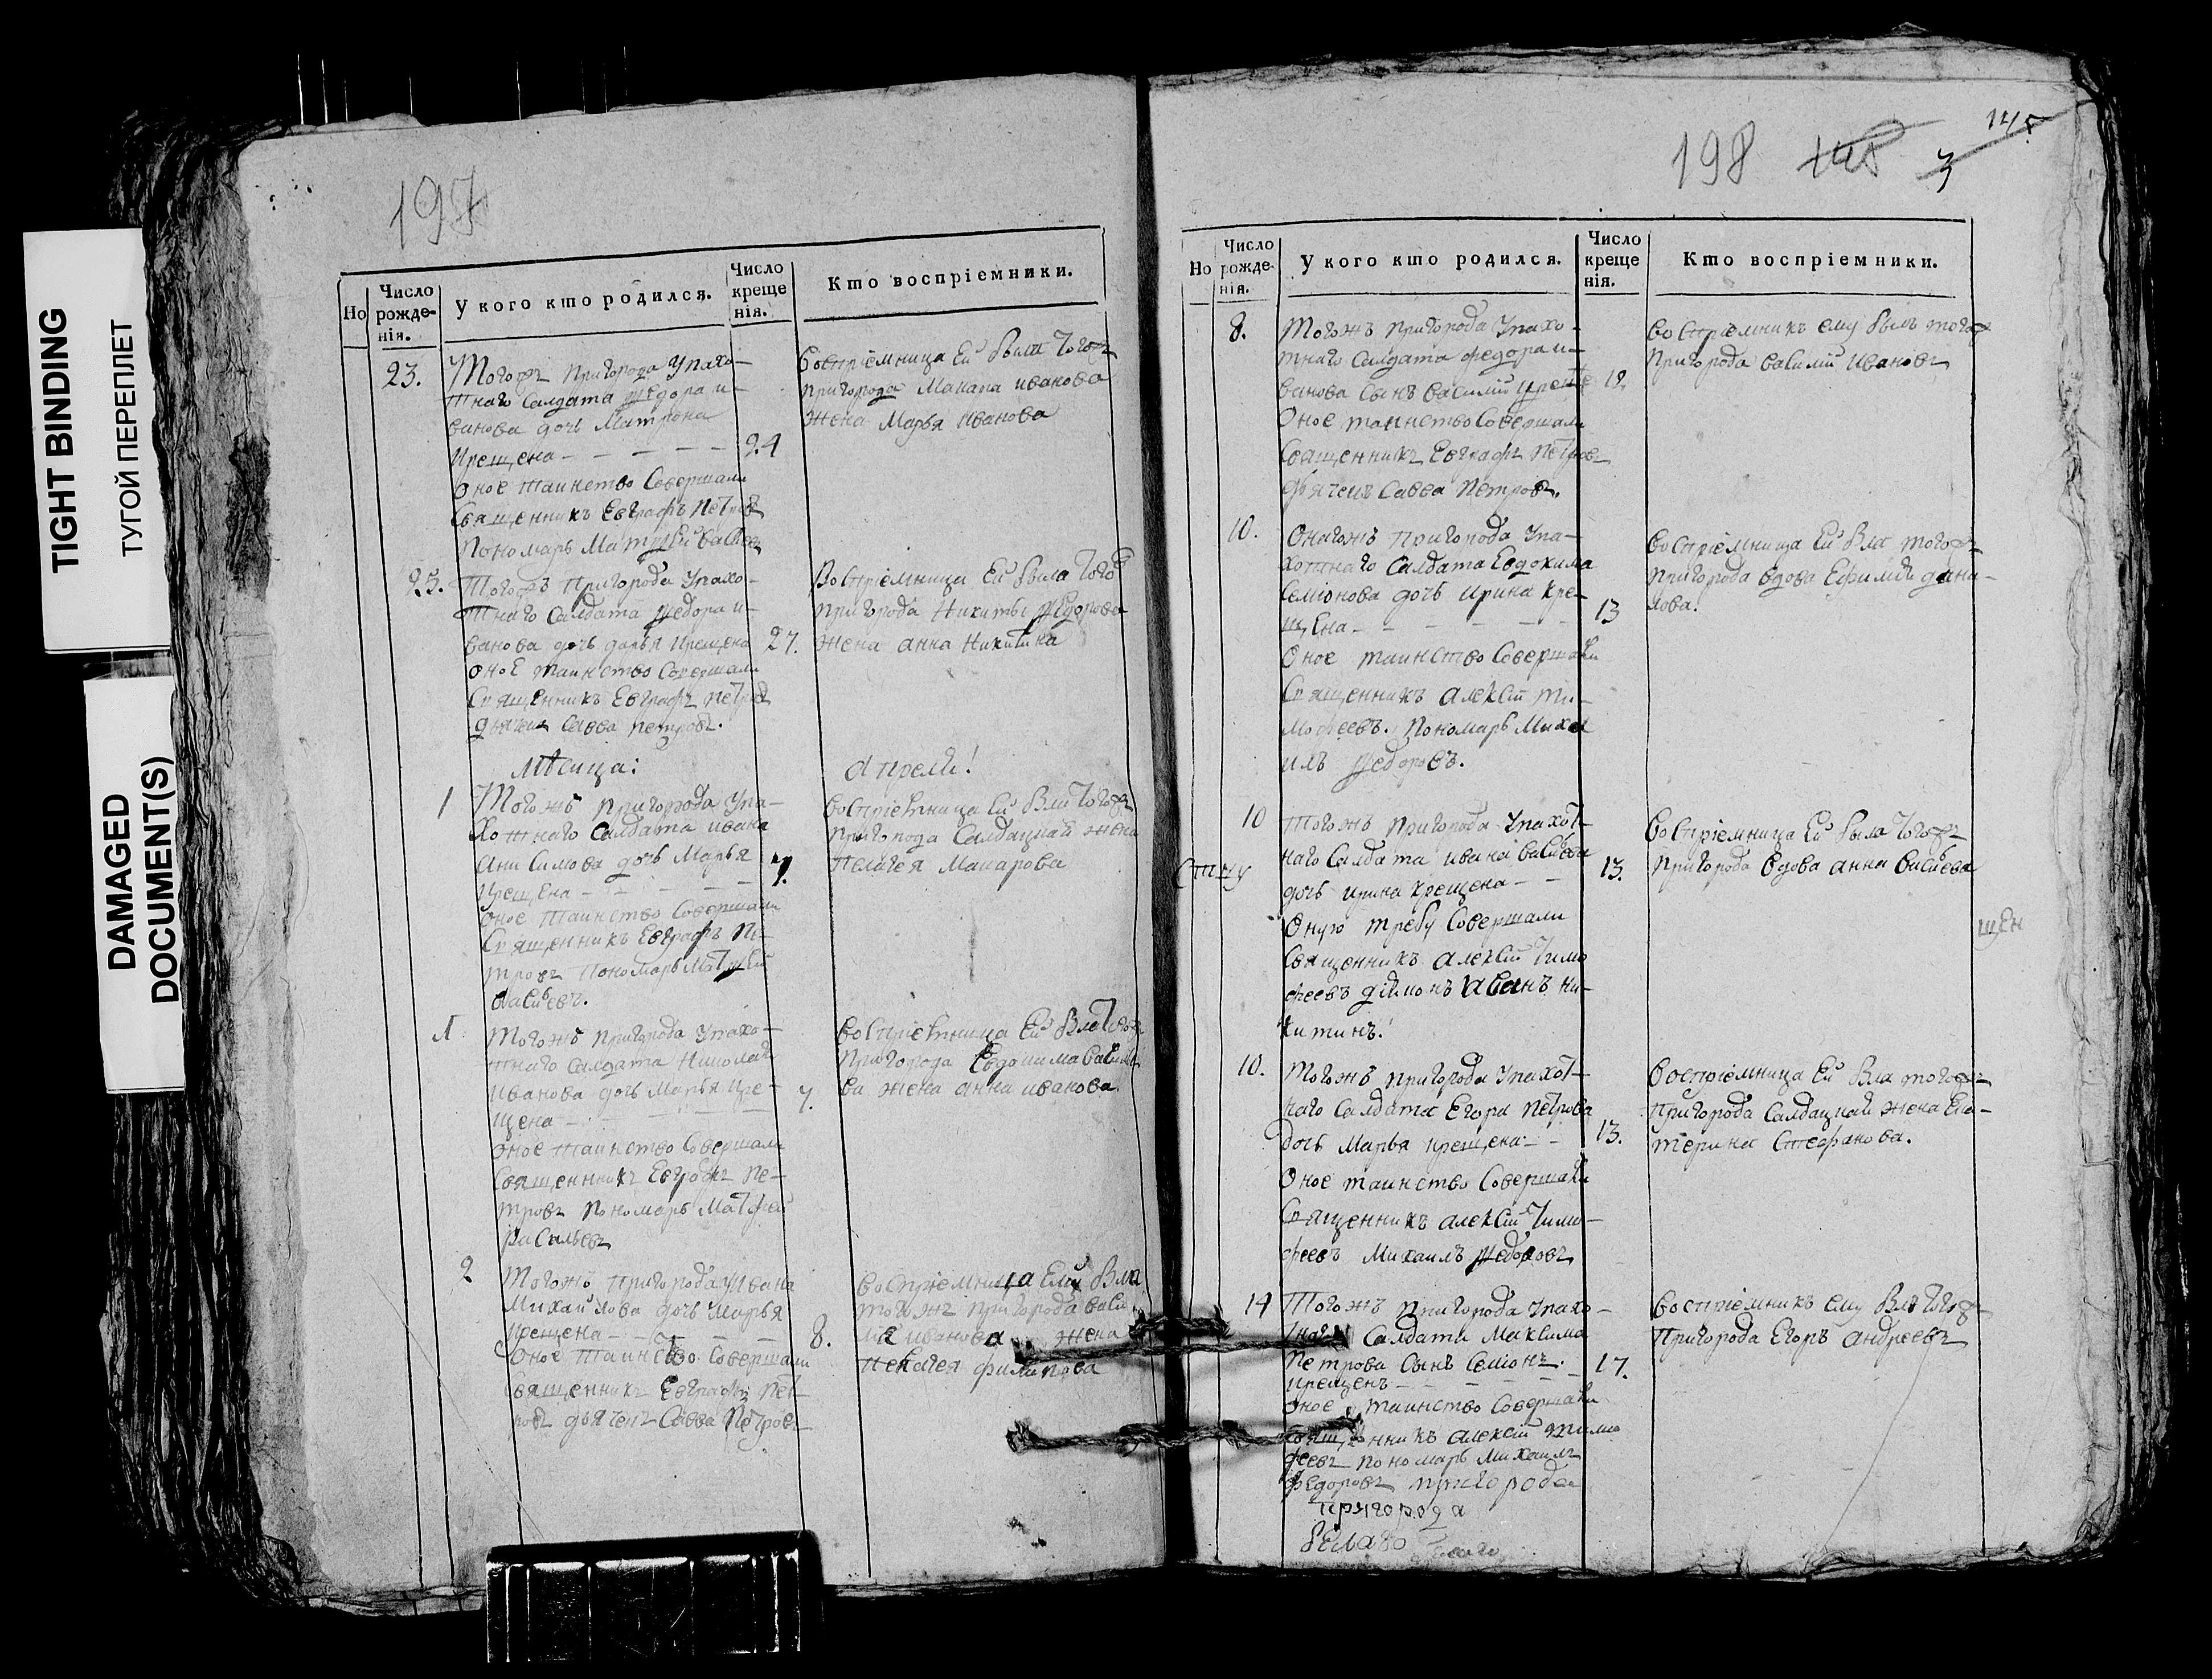 TIGHT BINDING
ТУГОЙ ПЕРЕПЛЕТ
DAMAGED
DOCUMENT(S)
197
Но
Число рожде-нія.
У кого кто родился.
Число креще нія.
Кто воспріемники.
23.
Тогожъ пригорода упахо-
тнаго Салдата Федора и-
ванова дочь Матрона
Крещена - - - - - 24
Оное таинство Совершали
Священникъ Евграфъ Петровъ
Пономарь Матфей
Воспріемница Ей была тогожъ
пригорода Макара иванова
жена Марья иванова
25.
Тогожъ пригорода упахо-
тнаго Салдата Федора и-
ванова дочь дарья крещена 27.
оное таинство Совершали
Священникъ Евграфъ Петровъ
дьячекъ Савва петровъ.
Воспріемница Ей была
пригорода Никиты Федорова
жена анна Никитина
Мѣсяца:
Апреля!
1
Тогожъ пригорода упа-
хотнаго Салдата ивана
Анисимова дочь Марья
Крещена - - - - - 7.
оное таинство Совершали
Священникъ Евграфъ Пе-
тровъ пономарь Матфей
Васильевъ.
Воспріемница Ей тогожъ
пригорода Салдацкая жена
Пелагея Макарова
1
Тогожъ пригорода упахо-
тнаго Салдата Николая
Иванова дочь Марья кре-
щена - - - - 7.
оное таинство Совершали
Священникъ Евграфъ Пе-
тровъ пономарь Матфей
Васильевъ
Воспріемница Ей
пригорода Евдокима Василье
ва жена анна иванова
2
Тогожъ пригорода Ивана
Михайлова дочь Марья
крещена - - - - - 8.
Оное таинство Совершали
Священникъ Евграфъ Пет-
ровъ дьячекъ Савва Петровъ
Воспріемница
тогожъ пригорода
иванова жена
Пелагея филипова
198 3
Но
Число рожде-нія.
У кого кто родился.
Число креще нія.
Кто воспріемники.
8.
Тогожъ пригорода упахо-
тнаго Салдата федора и-
ванова Сынъ василий
Оное таинство Совершали
Священникъ Евграфъ Петровъ
дьячекъ Савва Петровъ.
Воспріемникъ ему былъ тогожъ
Пригорода василий Ивановъ
10.
Онагожъ пригорода упа-
хотнаго Салдата Евдокима
Семіонова дочь Ирина кре-
щена - - - - - - 13
Оное таинство Совершали
Священникъ алексій ти-
мофеевъ. Пономарь Миха
илъ Федоровъ.
Воспріемница Ей тогожъ
пригорода вдова
10
Тогожъ пригорода упахот-
наго Салдата ивана васильева
дочь ирина крещена - - 13.
Оную требу Совершали
Священникъ алексій Тимо
феевъ Ни-
китинъ!
Воспріемница Ей была тогожъ
Пригорода вдова анна васильева
щен
10.
Тогожъ пригорода упахот-
наго Салдата Егора Петрова
дочь Марья крещена - - 13.
Оное таинство Совершали
Священникъ алексій Тимо-
феевъ Михаилъ Федоровъ
Воспріемница Ей тогожъ
пригорода Салдацкая жена Ека-
терина Стефанова.
14
Тогожъ пригорода упахо-
тнаго Салдата Максима
Петрова Сынъ Семіонъ.
крещенъ - - - - - - 17.
оное таинство Совершали
Священникъ алексій тимо
феевъ пономарь Михаилъ
Федоровъ пригорода
пригорода
Воспріемникъ ему
Пригорода Егоръ андреевъ